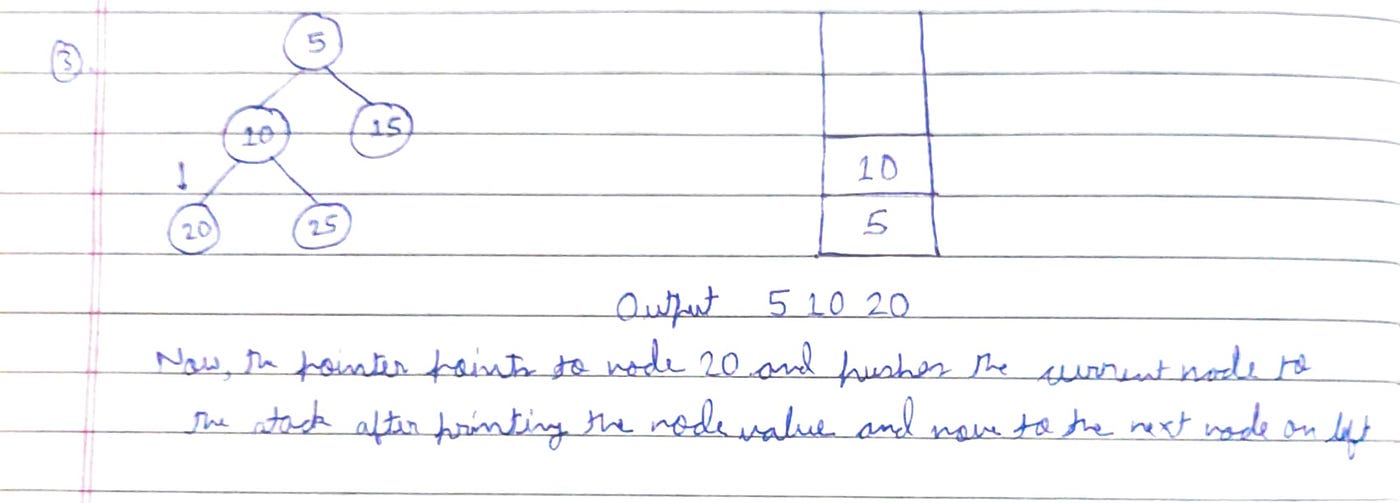 3
5
10 15
20 25
10
5
Output 5 10 20
Now, the pointer points to node 20 and pushes the current node to
the stack after printing the node value and move to the next node on left